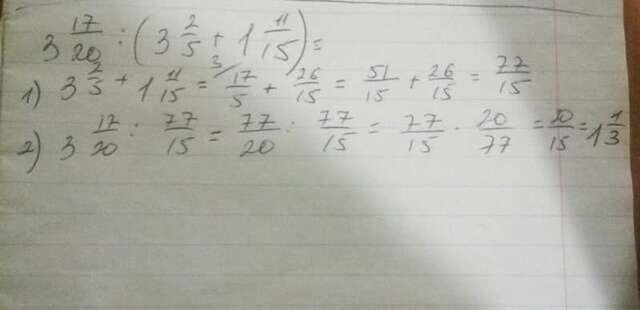 3 17/20 : (3 2/5 + 1 11/15) =
1) 3 2/5 + 1 11/15 = 17/5 3/ + 26/15 = 51/15 + 26/15 = 77/15
2) 3 17/20 : 77/15 = 77/20 : 77/15 = 77/15 · 20/77 = 20/15 = 1 1/3